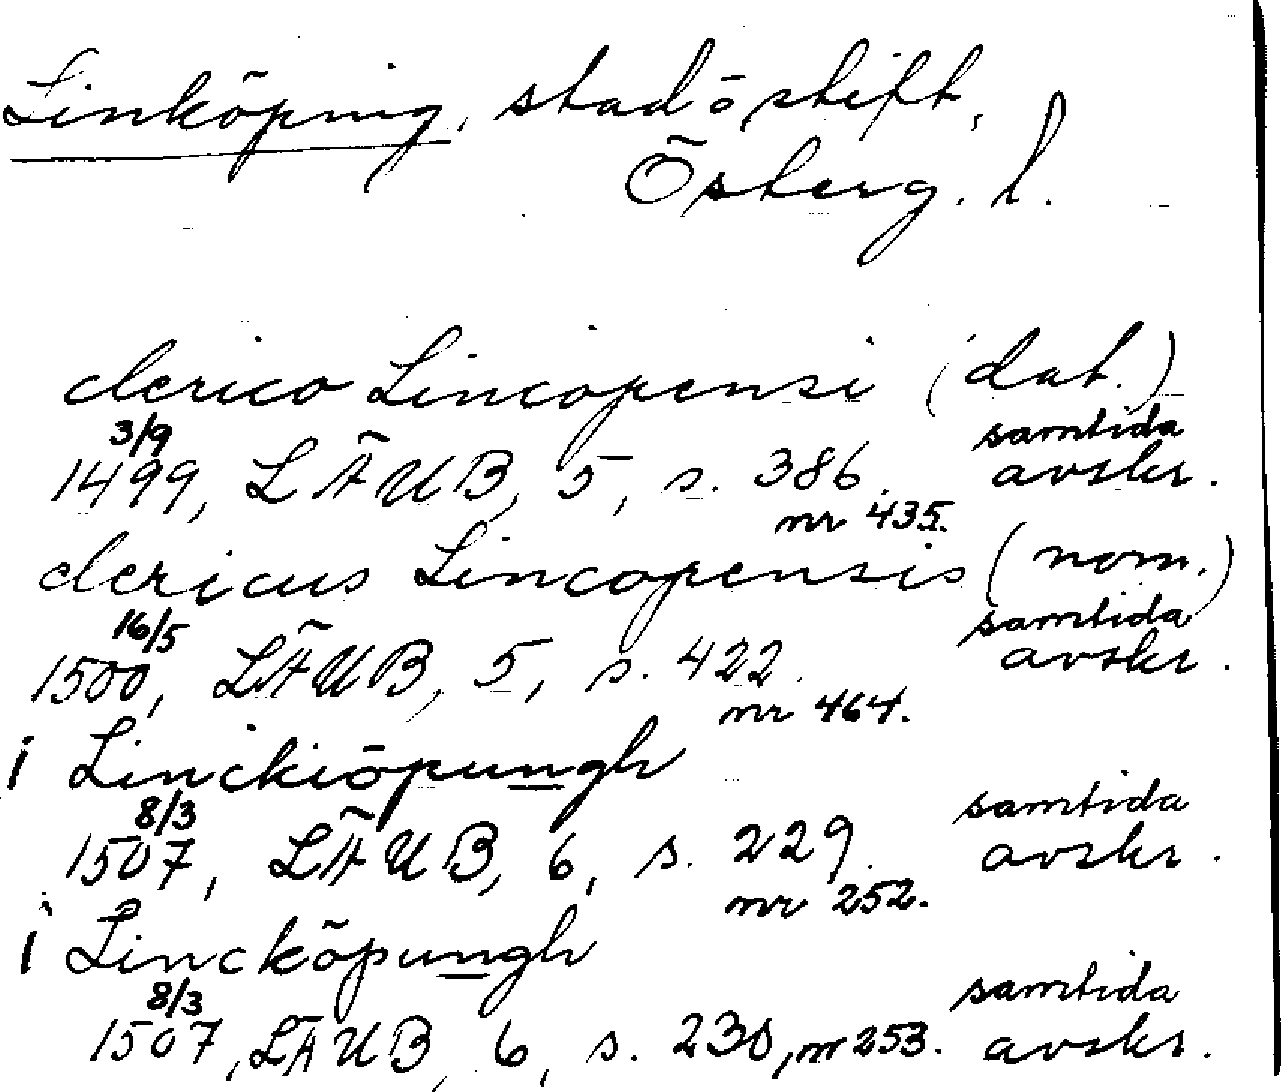 Linköping, stad o stift,
Österg. l.
clerico Lincopensi (dat.)
3/9 samtida
1499, LÄUB, 5, s. 386. avskr.
nr 435.
clericus Lincopensis (nom.)
16/5 samtida
1500, LÄUB, 5, s. 422. avskr.
nr 464.
i Linckiöpungh
8/3 samtida
1507, LÄUB, 6, s. 229. avskr.
nr 252.
i Lincköpungh
8/3 samtida
1507, LÄUB, 6, s. 230, nr 253. avskr.